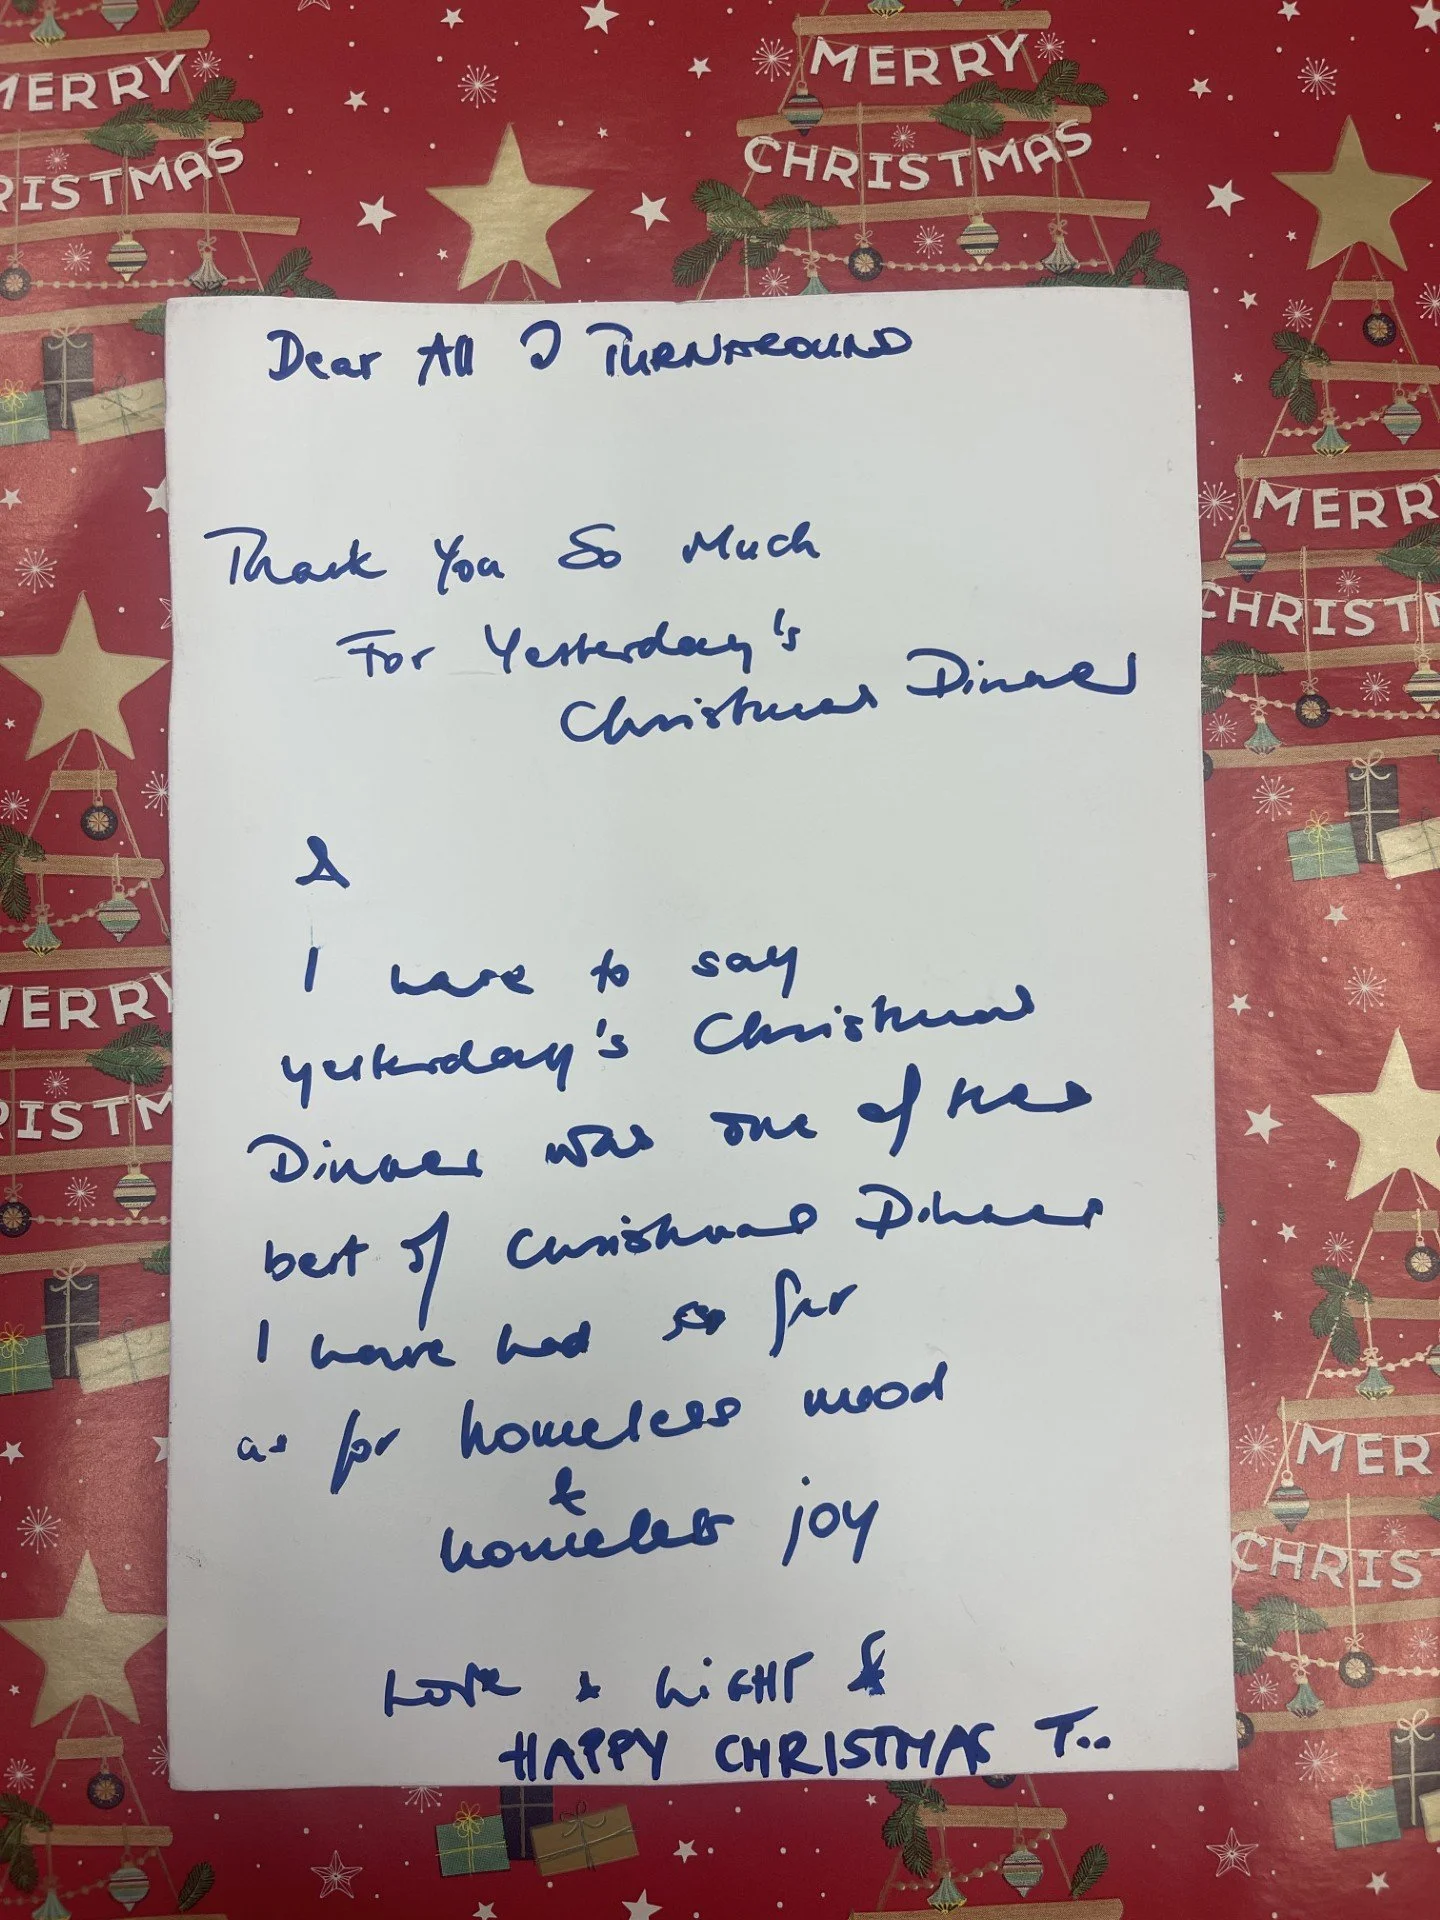 MERRY
CHRISTMAS
MERRY
CHRISTMAS
Dear All TURNAROUND
Thank You So Much
For Yesterday's
Christmas Dinner
&
I have to say
yesterday's Christmas
Dinner was one of the
best of Christmas Dinner
I have had so far
as for homeless mood
&
homeless joy
Love & LIGHT &
HAPPY CHRISTMAS T..
MERRY
CHRISTMAS
MERRY
CHRISTMAS
MERRY
CHRISTMAS